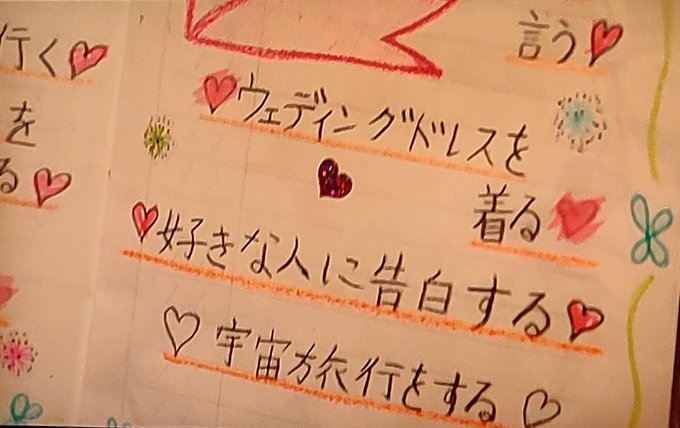 行く
を
る
言う
ウェディングドレスを
着る
好きな人に告白する
宇宙旅行をする